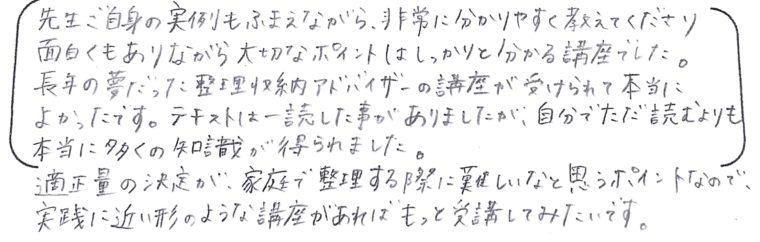 先生ご自身の実例もふまえながら、非常に分かりやすく教えてくださり
面白くもありながら大切なポイントはしっかりと分かる講座でした。
長年の夢だった整理収納アドバイザーの講座が受けられて本当に
よかったです。テキストは一読した事がありましたが、自分でただ読むよりも
本当に多くの知識が得られました。
適正量の決定が、家庭で整理する際に難しいなと思うポイントなので、
実践に近い形のような講座があればもっと受講してみたいです。